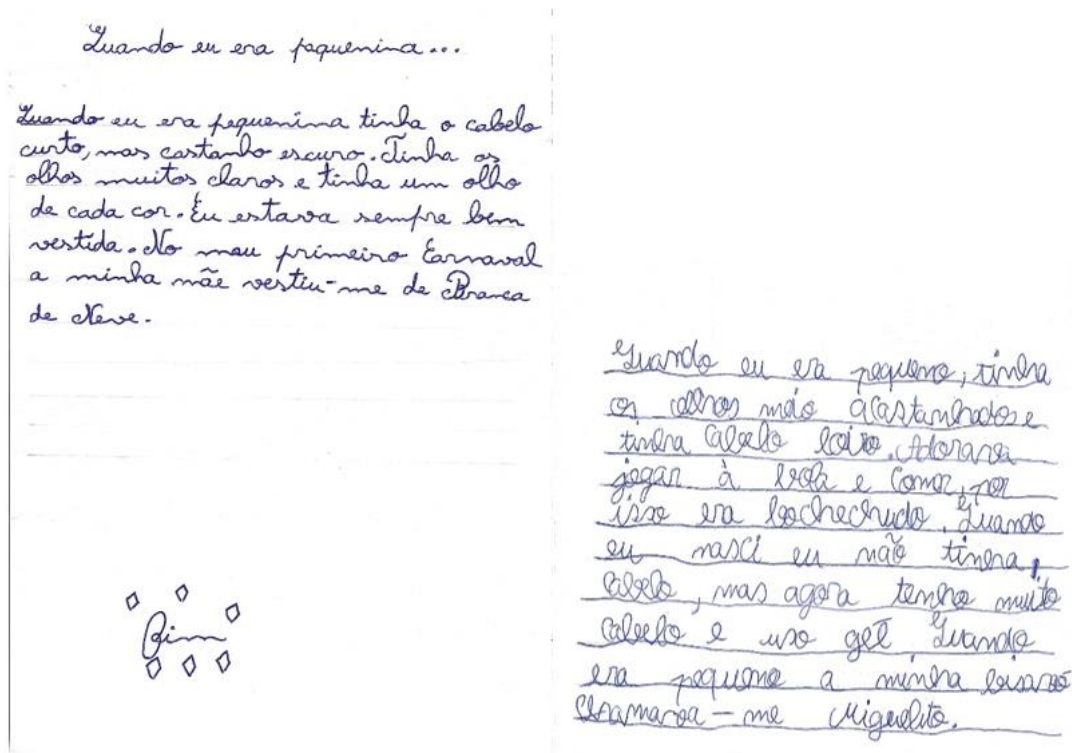 Quando eu era pequenina...
Quando eu era pequenina tinha o cabelo
curto, mas castanho escuro. Tinha os
olhos muitos claros e tinha um olho
de cada cor. Eu estava sempre bem
vestida. No meu primeiro Carnaval
a minha mãe vestiu-me de Branca
de Neve.
Fim
Quando eu era pequeno, tinha
os olhos meio acastanhados e
tinha cabelo loiro. Adorava
jogar à bola e comer, por
isso era bochechudo. Quando
eu nasci eu não tinha
cabelo, mas agora tenho muito
cabelo e uso gel. Quando
era pequeno a minha bisavó
chamava-me Miguelito.